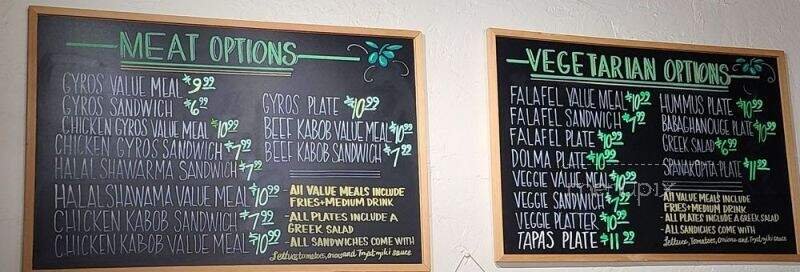 MEAT OPTIONS
GYROS VALUE MEAL $9.99
GYROS SANDWICH $6.99
CHICKEN GYROS VALUE MEAL $10.99
CHICKEN GYROS SANDWICH $7.99
HALAL SHAWARMA SANDWICH $7.99
HALAL SHAWAMA VALUE MEAL $10.99
CHICKEN KABOB SANDWICH $7.99
CHICKEN KABOB VALUE MEAL $10.99
GYROS PLATE $10.99
BEEF KABOB VALUE MEAL $10.99
BEEF KABOB SANDWICH $7.99
- All VALUE MEALS INCLUDE
FRIES + MEDIUM DRINK
- ALL PLATES INCLUDE A
GREEK SALAD
- ALL SANDICHES COME WITH
Lettuce, tomatoes, onions and Tzatziki sauce
VEGETARIAN OPTIONS
FALAFEL VALUE MEAL $10.99
FALAFEL SANDWICH $7.99
FALAFEL PLATE $10.99
DOLMA PLATE $10.99
VEGGIE VALUE MEAL $10.99
VEGGIE SANDWICH $7.99
VEGGIE PLATTER $10.99
TAPAS PLATE $11.99
HUMMUS PLATE $10.99
BABAGHANOUGE PLATE $10.99
GREEK SALAD $6.99
SPANAKOPITA PLATE $11.99
- All VALUE MEALS INCLUDE
FRIES + MEDIUM DRINK
- ALL PLATES INCLUDE A GREEK SALAD
- ALL SANDICHES COME WITH
Lettuce, Tomatoes, onions and Tzatziki sauce
menupix